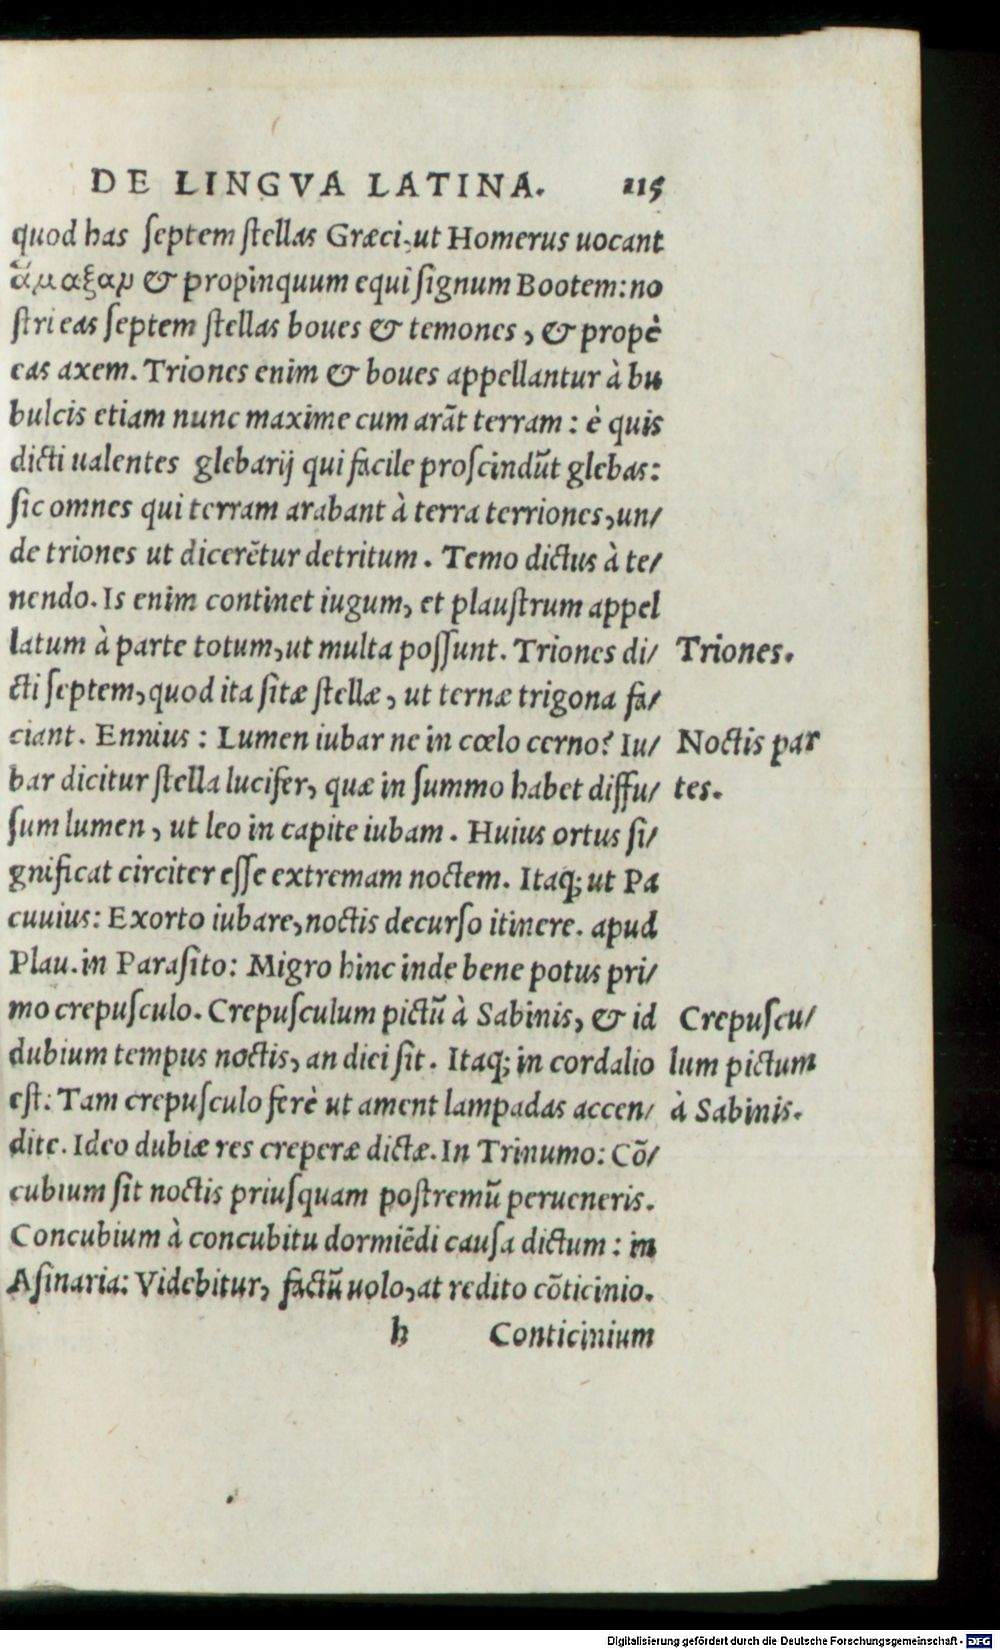 DE LINGVA LATINA. 115
quod has ſeptem ſtellas Græci, ut Homerus uocant
ἅμαξαν & propinquum equi ſignum Bootem: no
ſtri eas ſeptem ſtellas boues & temones, & propè
eas axem. Triones enim & boues appellantur à bu
bulcis etiam nunc maxime cum arāt terram: è quis
dicti ualentes glebarij qui facile proſcindūt glebas:
ſic omnes qui terram arabant à terra terriones, un/
de triones ut dicerētur detritum. Temo dictus à te/
nendo. Is enim continet iugum, et plauſtrum appel
latum à parte totum, ut multa poſſunt. Triones di/ Triones.
cti ſeptem, quod ita ſitæ ſtellæ, ut ternæ trigona fa/
ciant. Ennius: Lumen iubar ne in cœlo cerno? Iu/ Noctis par
bar dicitur ſtella lucifer, quæ in ſummo habet diffu/ tes.
ſum lumen, ut leo in capite iubam. Huius ortus ſi/
gnificat circiter eſſe extremam noctem. Itaq; ut Pa
cuuius: Exorto iubare, noctis decurſo itinere. apud
Plau. in Paraſito: Migro hinc inde bene potus pri/
mo crepuſculo. Crepuſculum pictū à Sabinis, & id Crepuſcu/
dubium tempus noctis, an diei ſit. Itaq; in cordalio lum pictum
eſt: Tam crepuſculo ferè ut ament lampadas accen/ à Sabinis.
dite. Ideo dubiæ res creperæ dictæ. In Trinumo: Cō/
cubium ſit noctis priuſquam poſtremū perueneris.
Concubium à concubitu dormiēdi cauſa dictum: in
Aſinaria: Videbitur, factū uolo, at redito cōticinio.
h Conticinium
Digitalisierung gefördert durch die Deutsche Forschungsgemeinschaft - DFG